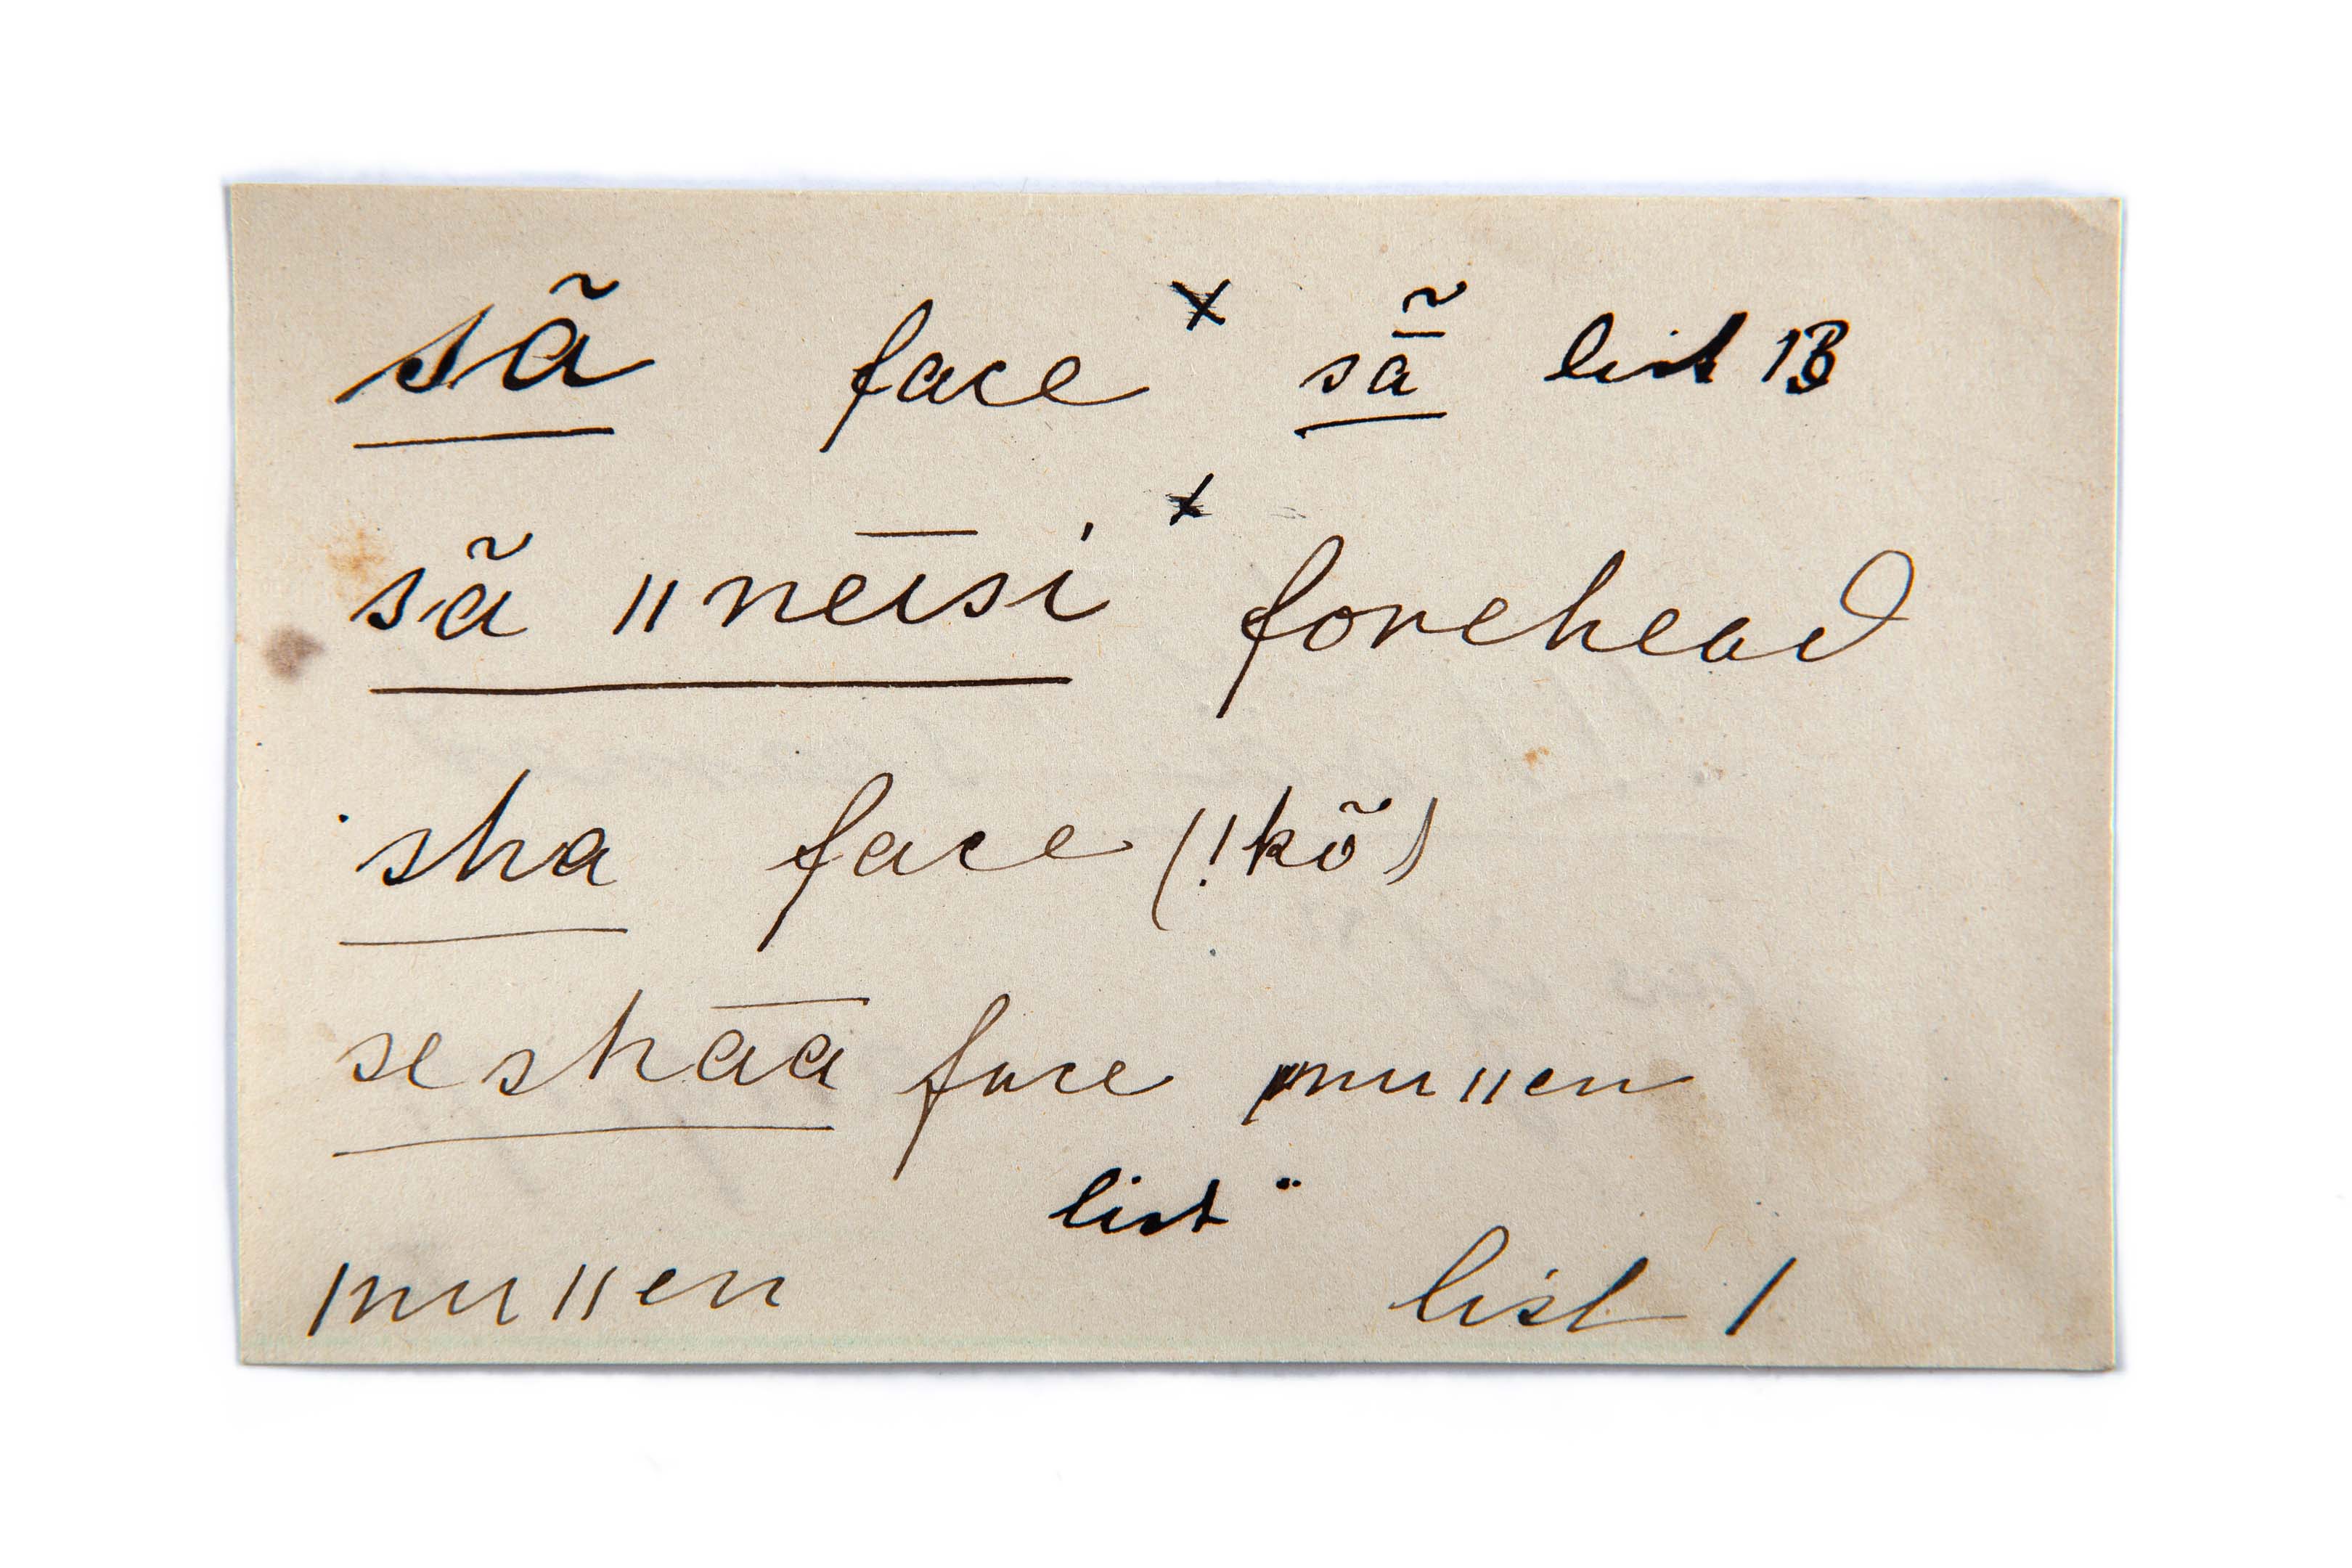 sã face × sā̃ list 13
sã ǁnēīsi × forehead
sha face (!kõ)
se shāā face ǀnuǁen
list "
ǀnuǁen list 1